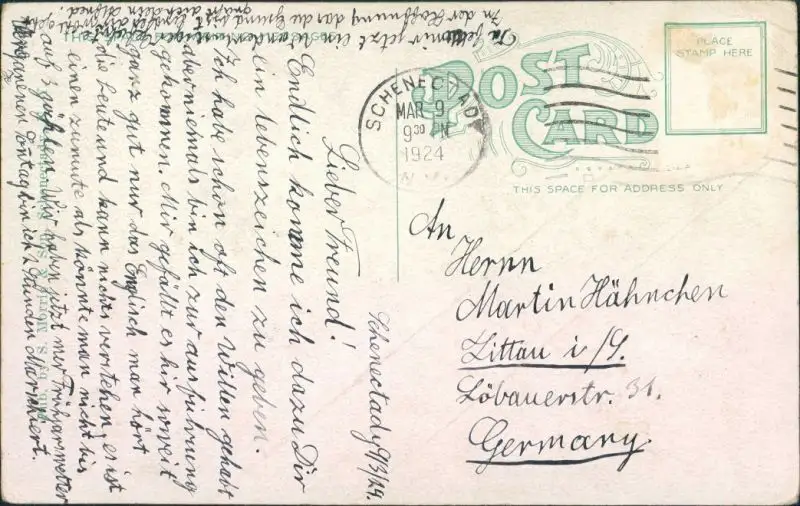 POST
CARD
PLACE
STAMP HERE
THIS SPACE FOR ADDRESS ONLY
SCHENECTADY
MAR 9
9 30
1924
An
Herrn
Martin Hähnchen
Zittau i/S.
Löbauerstr. 31.
Germany.
Schenectady 9/3/24.
Lieber Freund!
Endlich komme ich dazu Dir
ein lebenszeichen zu geben.
Ich habe schon oft den Willen gehabt
aber niemals bin ich zur ausführung
gekommen. Mir gefällt es hir soweit
ganz gut nur das Englisch man hört
die leute und kann nichts verstehen, es ist
einen zumute als könnte man nicht bis
auf 3 zählen. Wir haben jetzt mer Frühjarswetter
vergangenen Sontag bin ich 2 Stunden Marschiert.
In der Hoffnung das du Gesund bist